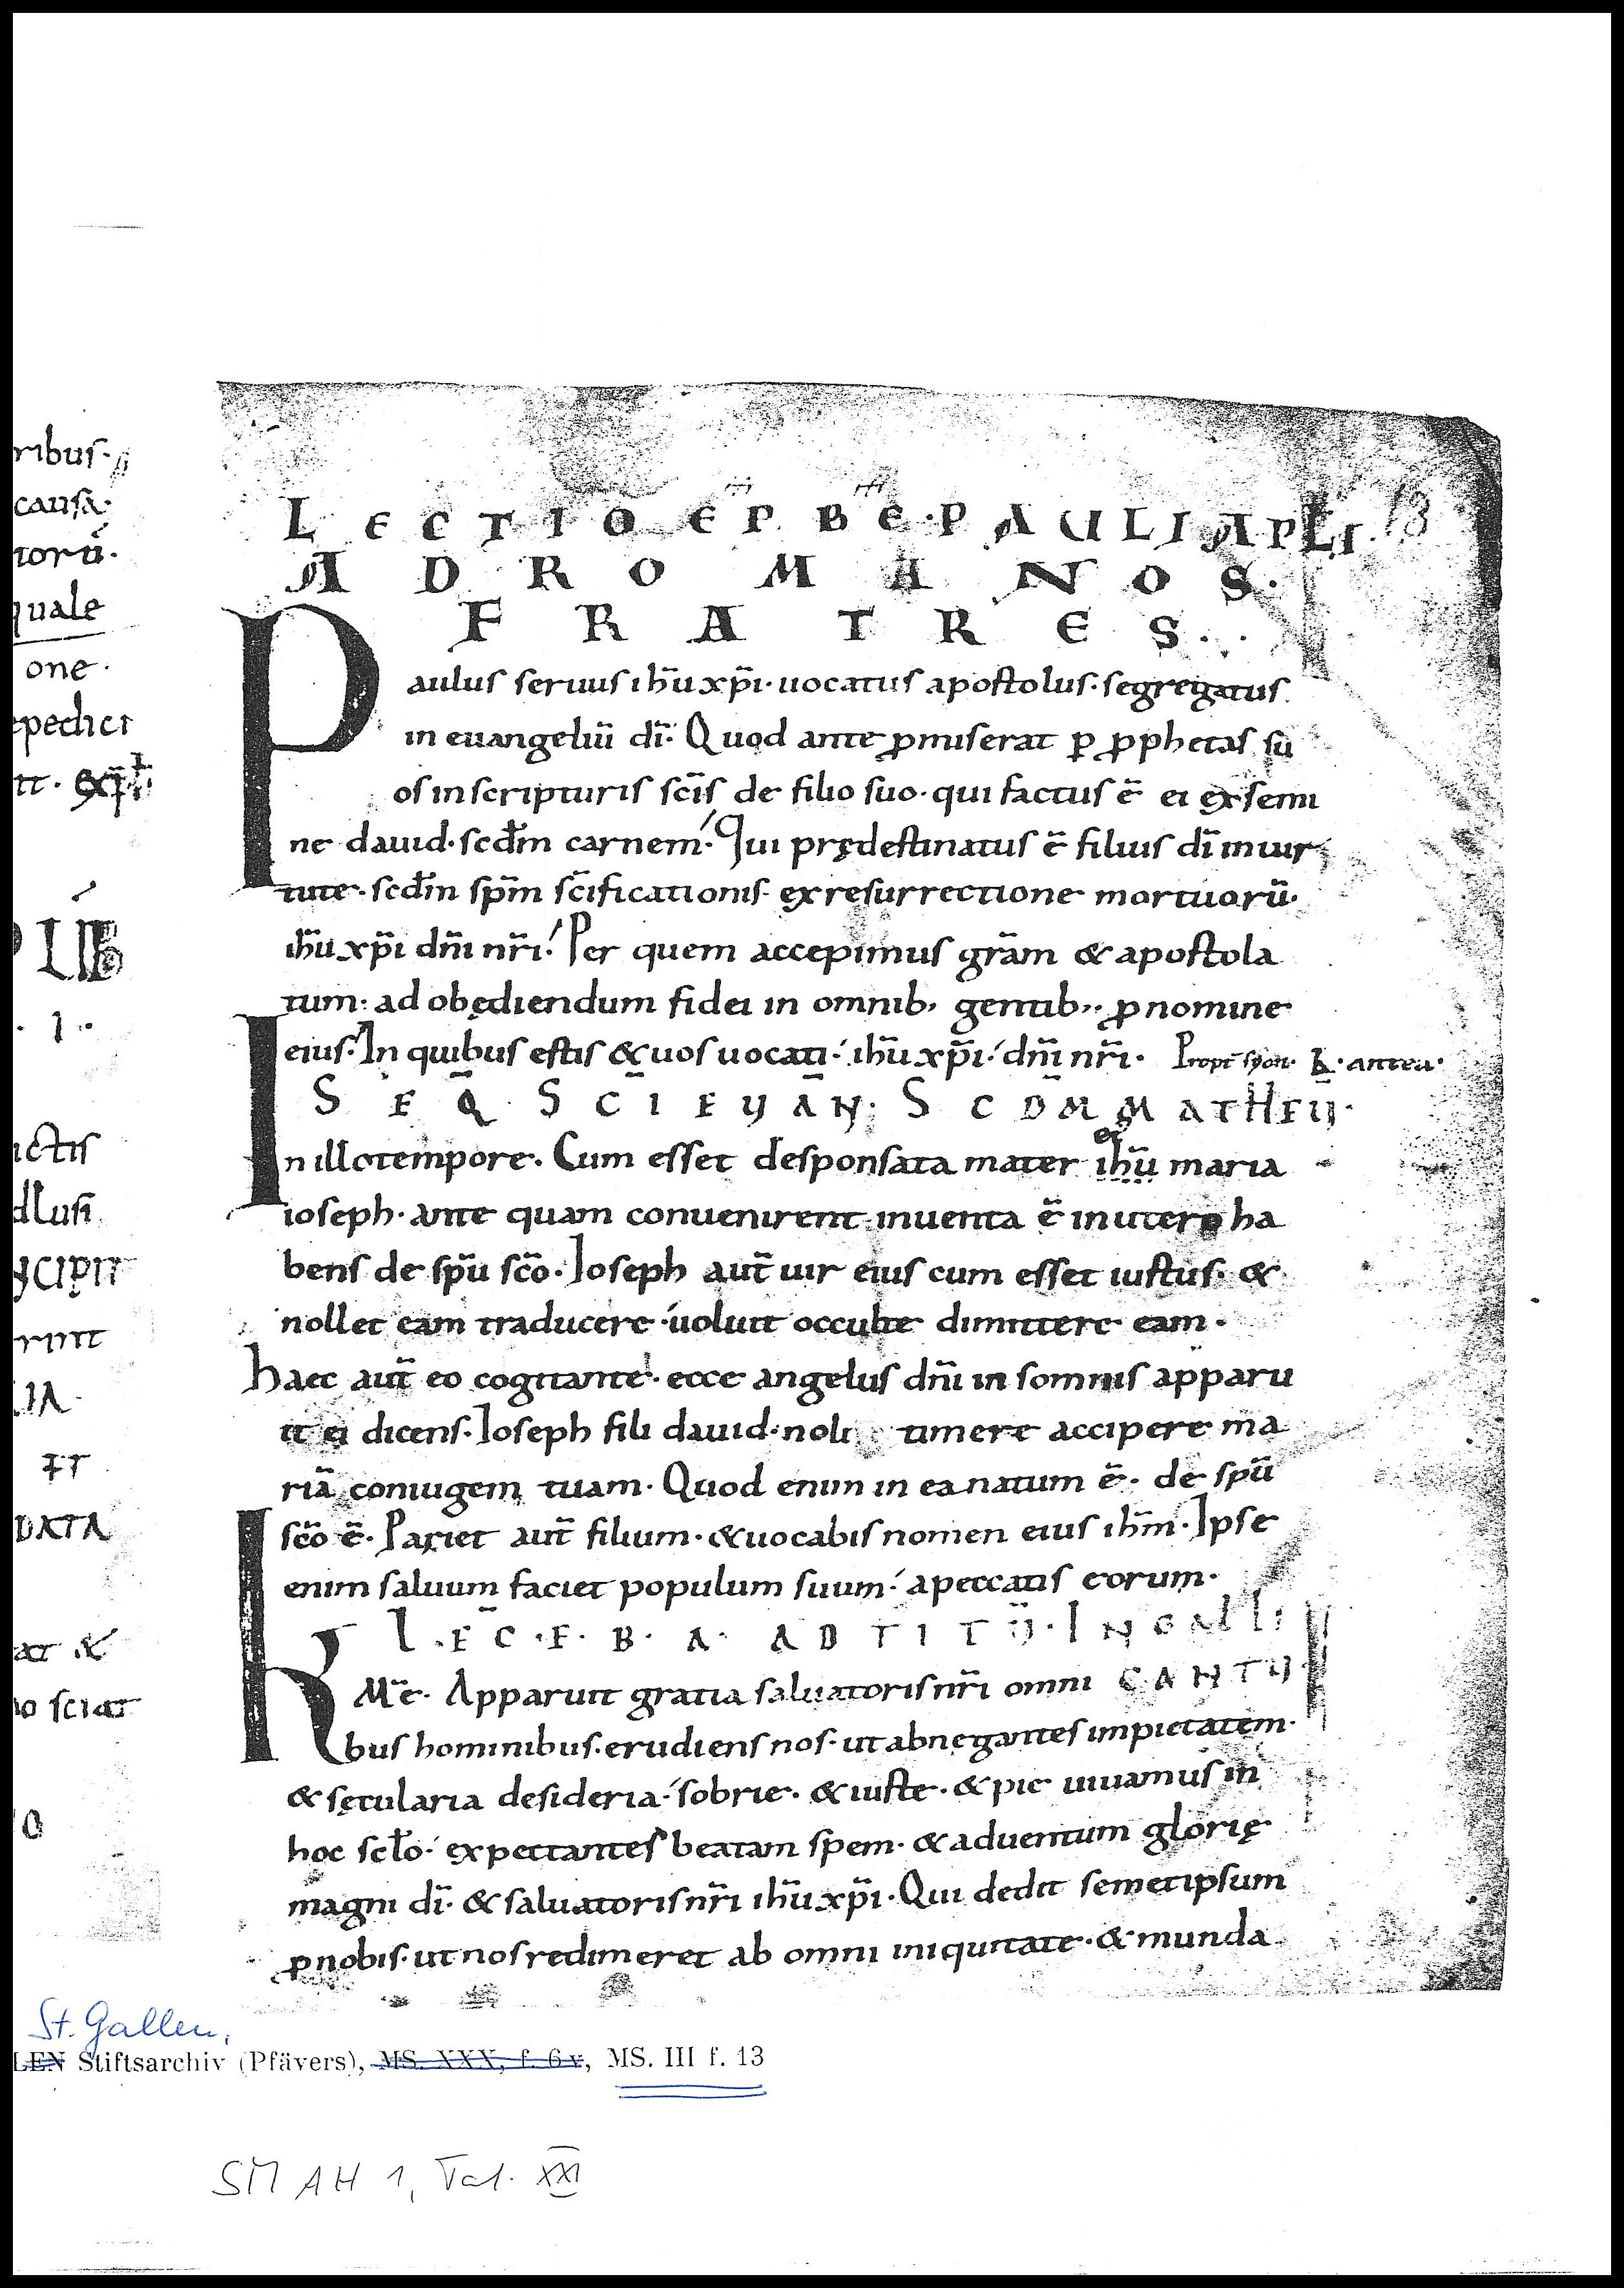 ribus·
causa·
torū·
quale
one·
epedici
LIB
· I ··
ictis
dLusi
NCIPIT
LIA·
ET
DATA
at &
o sciat
LECTIO EP̄ BE·PAULI APLI 13
AD ROMANOS·
FRATRES··
Paulus seruus ih̄u xp̄i· uocatus apostolus· segregatus
in euangeliū dī· Quod ante ꝓmiserat ꝑ ꝓphetas su
os in scripturis scīs de filio suo· qui factus ē ei ex semi
ne dauid· scdm̄ carnem· Qui prędestinatus ē filius dī in uir
tute· scdm̄ sp̄m sc̄ificationis· ex resurrectione mortuorū·
ih̄u xp̄i dn̄i nr̄i· Per quem accepimus grām & apostola
tum: ad obędiendum fidei in omnib; gentib;· ꝓ nomine
eius· In quibus estis & uos uocati· ih̄u xp̄i· dn̄i nr̄i· Propt̄ syon· R· antea·
SEQ̄· SCI EUĀN· SCDM̄ MATHEU·
In illo tempore· Cum esset desponsata mater ei ih̄ū maria
ioseph· ante quam conuenirent· inuenta ē in utero ha
bens de sp̄u sc̄o· Ioseph aut̄ uir eius cum esset iustus· &
nollet eam traducere· uoluit occulte dimittere eam·
haec aut̄ eo cogitante· ecce angelus dn̄i in somnis apparu
it ei dicens· Ioseph fili dauid· noli timere accipere ma
riā coniugem tuam· Quod enim in ea natum ē· de sp̄u
sc̄o ē· Pariet aut̄ filium· & uocabis nomen eius ih̄m· Ipse
enim saluum faciet populum suum· a peccatis eorum·
L·EC̄·E·B·A· AD TITŪ· IN GALLI
KM̄e· Apparuit gratia saluatoris nr̄i omni CANTU
bus hominibus· erudiens nos· ut abnegantes impietatem·
& sęcularia desideria· sobrie· & iuste· & pie uiuamus in
hoc scl̄o· expectantes beatam spem· & aduentum glorię
magni dī· & saluatoris nr̄i ih̄u xp̄i· Qui dedit semetipsum
ꝓ nobis· ut nos redimeret ab omni iniquitate· & munda
St. Gallen,
LEN Stiftsarchiv (Pfävers), MS. XXX, f. 6v, MS. III f. 13
SMAH 1, Taf. XXI